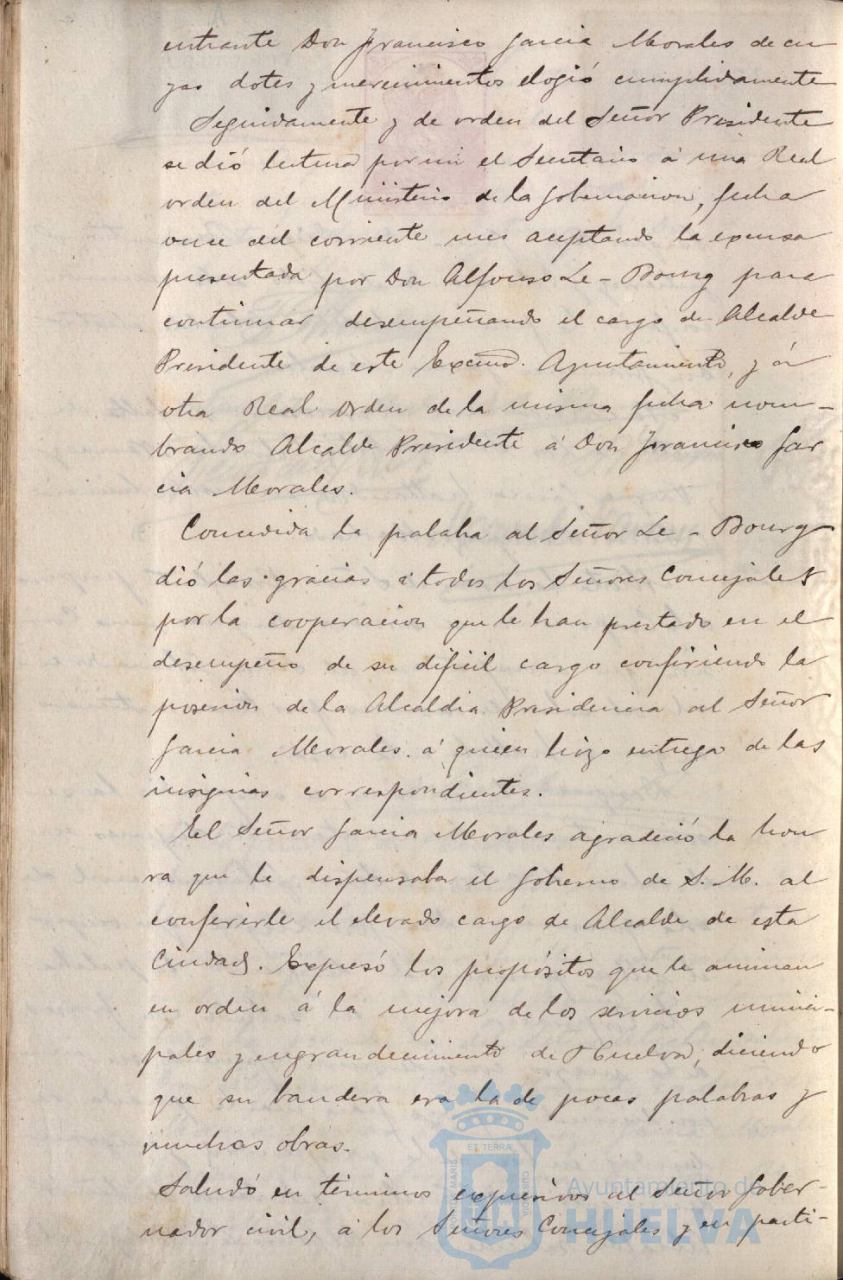 entrante Don Francisco Garcia Morales de cu
yas dotes y merecimientos elogió cumplidamente
Seguidamente y de orden del Señor Presidente
se dió lectura por mi el Secretario á una Real
orden del Ministerio de la Gobernacion, fecha
once del corriente mes aceptando la escusa
presentada por Don Alfonso Le-Bourg para
continuar desempeñando el cargo de Alcalde
Presidente de este Excmo. Ayuntamiento, y á
otra Real orden de la misma fecha nom-
brando Alcalde Presidente á Don Francisco Gar
cia Morales.
Concedida la palabra al Señor Le-Bourg
dió las gracias á todos los Señores Concejales
por la cooperacion que le han prestado en el
desempeño de su dificil cargo confiriendo la
posesion de la Alcaldia Presidencia al Señor
Garcia Morales. á quien hizo entrega de las
insignias correspondientes.
El Señor Garcia Morales agradeció la hon
ra que le dispensaba el Gobierno de S. M. al
conferirle el elevado cargo de Alcalde de esta
Ciudad. Expresó los propósitos que le animan
en orden á la mejora de los servicios munici-
pales y engrandecimiento de Huelva, diciendo
que su bandera era la de pocas palabras y
muchas obras.
Saludó en términos expresivos al Señor Gober-
nador civil, á los Señores Concejales y en parti-
ET TERRA
MARIS
CUSTODIA
Ayuntamiento de
HUELVA